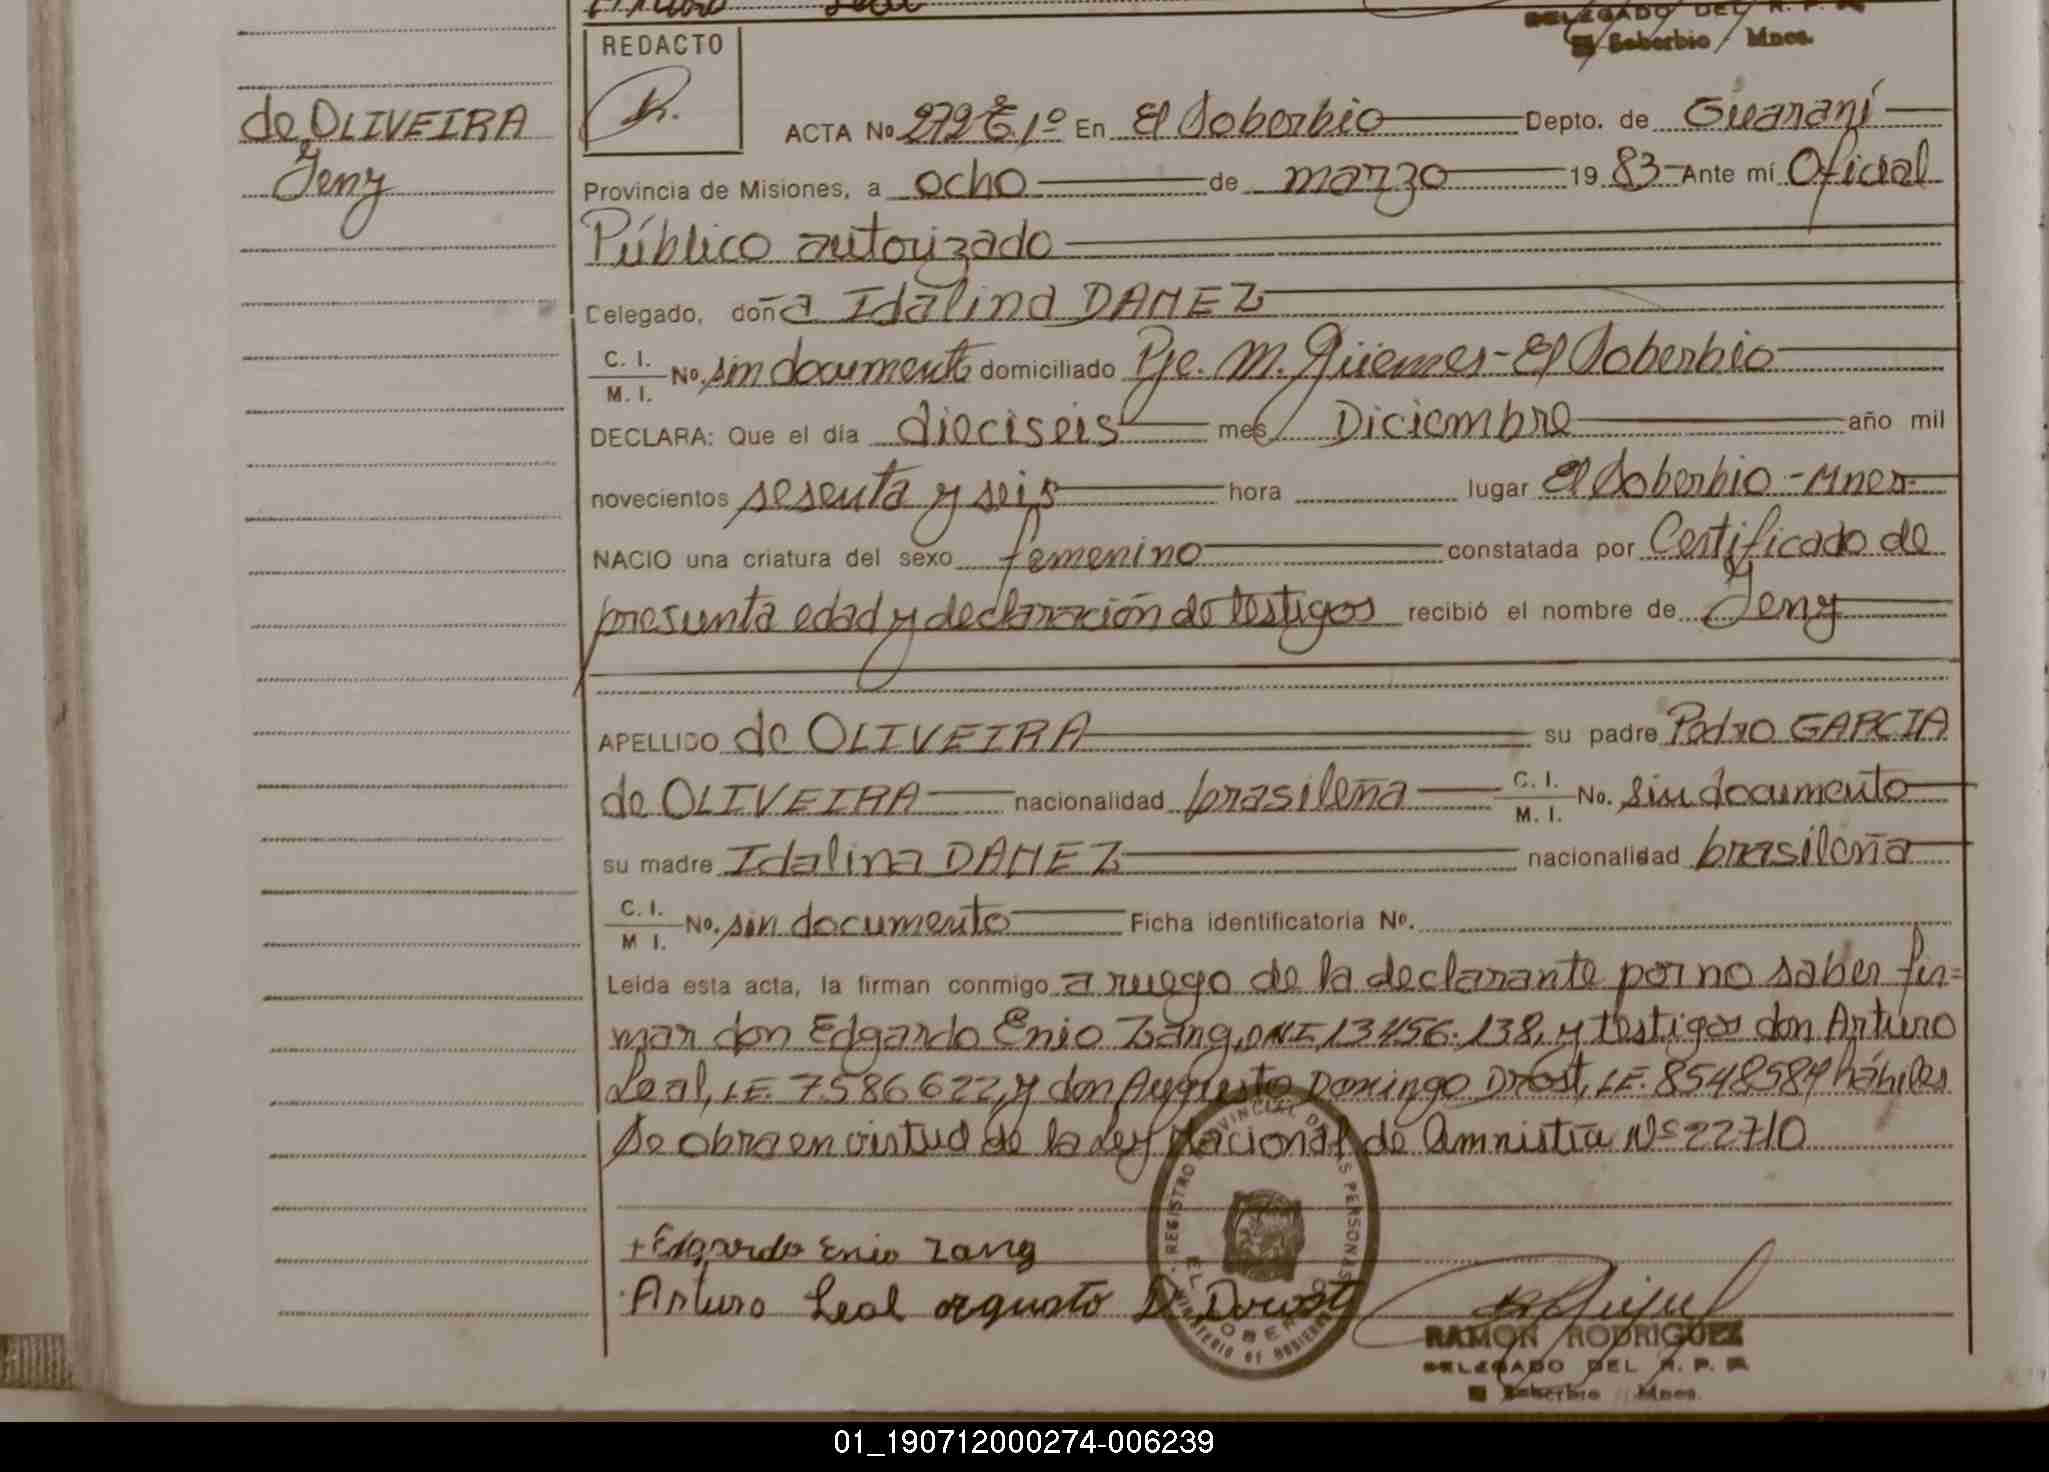 Arturo Leal
DELEGADO DEL R. P.
El Soberbio Mnes.
REDACTO
de OLIVEIRA
Jeny
ACTA No. 272 E. 1º En El Soberbio Depto. de Guaraní
Provincia de Misiones, a ocho de marzo 19 83 Ante mí Oficial
Público autorizado
Celegado, doña Idalina DAMEZ
C. I. M. I. No. sin documento domiciliado Pje. M. Güemes - El Soberbio
DECLARA: Que el día dieciseis mes Diciembre año mil
novecientos sesenta y seis hora lugar El Soberbio - Mnes
NACIO una criatura del sexo femenino constatada por Certificado de
presunta edad y declaración de testigos recibió el nombre de Jeny
APELLIDO de OLIVEIRA su padre Pedro GARCIA
de OLIVEIRA nacionalidad brasileña C. I. M. I. No. sin documento
su madre Idalina DAMEZ nacionalidad brasileña
C. I. M I. No. sin documento Ficha identificatoria No.
Leída esta acta, la firman conmigo a ruego de la declarante por no saber fir=
mar don Edgardo Enio Zang, DNI 13.456.138, y testigos don Arturo
Leal, LE. 7586622, y don Augusto Domingo Drost, LE. 8548584 hábiles
Se obra en virtud de la Ley Nacional de Amnistía Nº 22710
+Edgardo Enio Zang
Arturo Leal Augusto D. Drost
REGISTRO PROVINCIAL DE LAS PERSONAS
EL SOBERBIO
MINISTERIO DE GOBIERNO
RAMON RODRIGUEZ
DELEGADO DEL R. P.
El Soberbio Mnes.
01_190712000274-006239